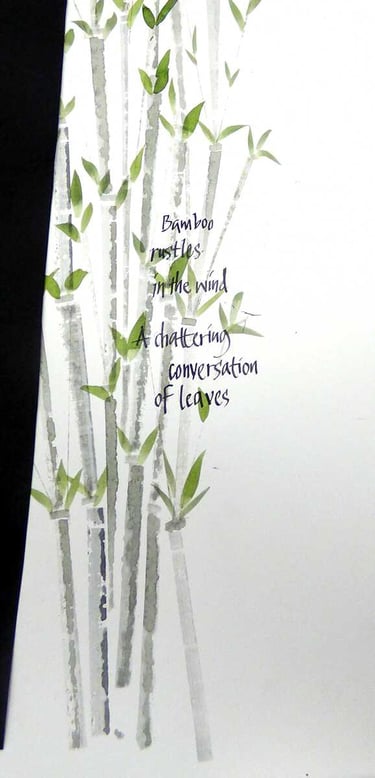 Bamboo
rustles
in the wind
A chattering
conversation
of leaves